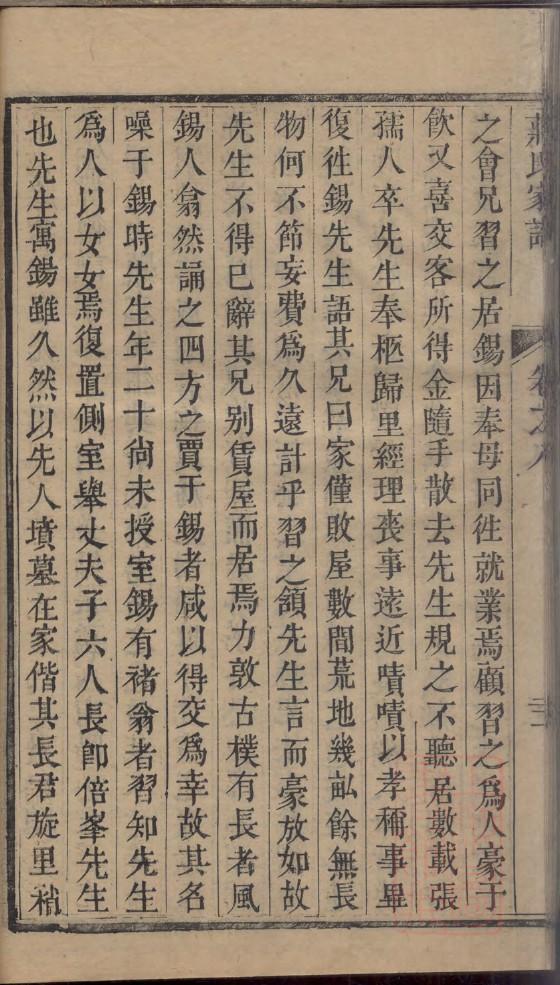 之會兄習之居錫因奉母同徃就業焉顧習之爲人豪于
飲又喜交客所得金隨手散去先生規之不聽居數載張
孺人卒先生奉柩歸里經理喪事遠近嘖嘖以孝稱事畢
復徃錫先生語其兄曰家僅敗屋數間荒地幾畆餘無長
物何不節妄費爲久遠計乎習之頷先生言而豪放如故
先生不得已辭其兄别賃屋而居焉力敦古樸有長者風
錫人翕然誦之四方之賈于錫者咸以得交爲幸故其名
噪于錫時先生年二十尙未授室錫有褚翁者習知先生
爲人以女女焉復置側室舉丈夫子六人長卽倍峯先生
也先生寓錫雖久然以先人墳墓在家偕其長君旋里稍
氏家譜
卷之八